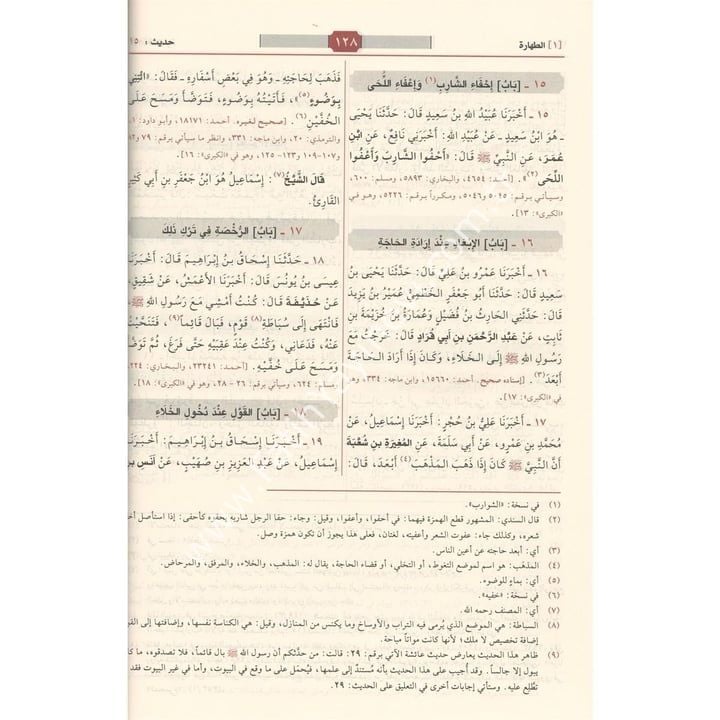 [١] الطهارة
١٢٨
حديث : ١٥
١٥ - [بَابُ] إِحْفَاءِ الشَّارِبِ(١) وَإِعْفَاءِ اللُّحَى
١٥ - أَخْبَرَنَا عُبَيْدُ اللهِ بنُ سَعِيدٍ قَالَ: حَدَّثَنَا يَحْيَى
- هوَ ابْنُ سَعِيدٍ - عَنْ عُبَيْدِ اللهِ: أَخْبَرَنِي نَافِعٌ، عَنِ ابْنِ
عُمَرَ، عَنِ النَّبِيِّ ﷺ قَالَ: «أَحْفُوا الشَّارِبَ وَأَعْفُوا
اللِّحَى(٢)». [أحمد: ٤٦٥٤، والبخاري: ٥٨٩٣، ومسلم: ٦٠٠،
وسيأتي برقم: ٥٠٤٥ و٥٠٤٦، ومكرراً برقم: ٥٢٢٦، وهو في
«الكبرى»: ١٣].
١٦ - [بَابُ] الإِبْعَادِ عِنْدَ إِرَادَةِ الحَاجَةِ
١٦ - أَخْبَرَنَا عَمْرُو بنُ عَلِيٍّ قَالَ: حَدَّثَنَا يَحْيَى بنُ
سَعِيدٍ قَالَ: حَدَّثَنَا أَبُو جَعْفَرٍ الخَطْمِيُّ عُمَيْرُ بنُ يَزِيدَ
قَالَ: حَدَّثَنِي الحَارِثُ بنُ فُضَيْلٍ وَعُمَارَةُ بنُ خُزَيْمَةَ بنِ
ثَابِتٍ، عَنْ عَبْدِ الرَّحْمَنِ بنِ أَبِي قُرَادٍ قَالَ: خَرَجْتُ مَعَ
رَسُولِ اللهِ ﷺ إِلَى الخَلَاءِ، وَكَانَ إِذَا أَرَادَ الحَاجَةَ
أَبْعَدَ(٣). [إسناده صحيح. أحمد: ١٥٦٦٠، وابن ماجه: ٣٣٤، وهو
في «الكبرى»: ١٧].
١٧ - أَخْبَرَنَا عَلِيُّ بنُ حُجْرٍ: أَخْبَرَنَا إِسْمَاعِيلُ، عَنْ
مُحَمَّدِ بنِ عَمْرٍو، عَنْ أَبِي سَلَمَةَ، عَنِ المُغِيرَةِ بنِ شُعْبَةَ
أَنَّ النَّبِيَّ ﷺ كَانَ إِذَا ذَهَبَ المَذْهَبَ(٤) أَبْعَدَ، قَالَ:
فَذَهَبَ لِحَاجَتِهِ - وَهُوَ فِي بَعْضِ أَسْفَارِهِ - فَقَالَ: «ائْتِنِي
بِوَضُوءٍ(٥)»، فَأَتَيْتُهُ بِوَضُوءٍ، فَتَوَضَّأَ وَمَسَحَ عَلَى
الخُفَّيْنِ(٦). [صحيح لغيره. أحمد: ١٨١٧١، وأبو داود: ١،
والترمذي: ٢٠، وابن ماجه: ٣٣١، وانظر ما سيأتي برقم: ٧٩ و٨٢
و١٠٧-١٠٩ و١٢٣- ١٢٥، وهو في «الكبرى»: ١٦].
قَالَ الشَّيْخُ(٧): إِسْمَاعِيلُ هُوَ ابْنُ جَعْفَرِ بنِ أَبِي كَثِيرٍ
القَارِئُ.
١٧ - [بَابُ] الرُّخْصَةِ فِي تَرْكِ ذَلِكَ
١٨ - حَدَّثَنَا إِسْحَاقُ بنُ إِبْرَاهِيمَ قَالَ: أَخْبَرَنَا
عِيسَى بنُ يُونُسَ قَالَ: أَخْبَرَنَا الأَعْمَشُ، عَنْ شَقِيقٍ،
عَنْ حُذَيْفَةَ قَالَ: كُنْتُ أَمْشِي مَعَ رَسُولِ اللهِ ﷺ،
فَانْتَهَى إِلَى سُبَاطَةِ(٨) قَوْمٍ، فَبَالَ قَائِماً(٩)، فَتَنَحَّيْتُ
عَنْهُ، فَدَعَانِي، وَكُنْتُ عِنْدَ عَقِبَيْهِ حَتَّى فَرَغَ، ثُمَّ تَوَضَّأَ
وَمَسَحَ عَلَى خُفَّيْهِ. [أحمد: ٢٣٢٤١، والبخاري: ٢٢٤،
ومسلم: ٦٢٤، وسيأتي برقم: ٢٦ - ٢٨، وهو في «الكبرى»: ١٨].
١٨ - [بَابُ] القَوْلِ عِنْدَ دُخُولِ الخَلَاءِ
١٩ - أَخْبَرَنَا إِسْحَاقُ بنُ إِبْرَاهِيمَ: أَخْبَرَنَا
إِسْمَاعِيلُ، عَنْ عَبْدِ العَزِيزِ بنِ صُهَيْبٍ، عَنْ أَنَسِ بنِ
(١) في نسخة: «الشوارب».
(٢) قال السندي: المشهور قطع الهمزة فيهما: في أحفوا، وأعفوا، وقيل: وجاء: حفا الرجل شاربه يحفوه كأحفى: إذا استأصل أخذ
شعره، وكذلك جاء: عفوت الشعر وأعفيته، لغتان، فعلى هذا يجوز أن تكون همزة وصل.
(٣) أي: أبعد حاجته عن أعين الناس.
(٤) المذهب: هو اسم لموضع التغوط، أو التخلي، أو قضاء الحاجة، يقال له: المذهب، والخلاء، والمرفق، والمرحاض.
(٥) أي: بماءٍ للوضوء.
(٦) في نسخة: «خفيه».
(٧) أي: المصنف رحمه الله.
(٨) السباطة: هي الموضع الذي يُرمى فيه التراب والأوساخ وما يكنس من المنازل، وقيل: هي الكناسة نفسها، وإضافتها إلى القوم
إضافة تخصيص لا ملك؛ لأنها كانت مواتاً مباحة.
(٩) ظاهر هذا الحديث يعارض حديث عائشة الآتي برقم: ٢٩: قالت: من حدَّثكم أن رسول الله ﷺ بال قائماً، فلا تصدقوه، ما كان
يبول إلا جالساً. وقد أُجيب على هذا الحديث بأنه مُستندٌ إلى علمها، فيُحمل على ما وقع في البيوت، وأما في غير البيوت فقد
تطَّلِع عليه. وستأتي إجابات أخرى في التعليق على الحديث: ٢٩.